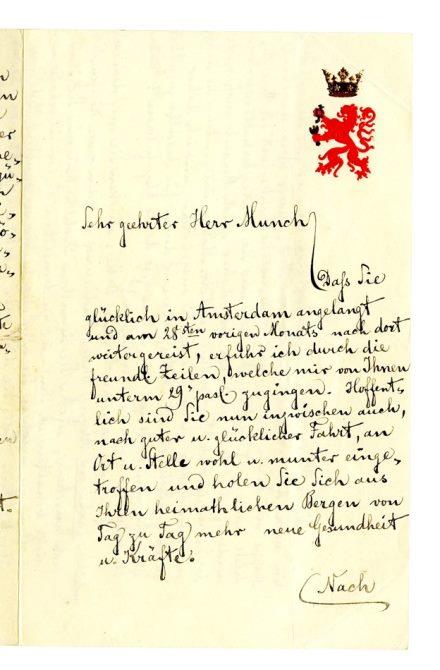 Sehr geehrter Herr Munch
Daß Sie
glücklich in Amsterdam angelangt
und am 28sten vorigen Monats nach dort
weitergereist, erfuhr ich durch die
freundl. Zeilen, welche mir von Ihnen
unterm 29' past zugingen. Hoffent-
lich sind Sie nun inzwischen auch,
nach guter u. glücklicher Fahrt, an
Ort u. Stelle wohl u. munter einge-
troffen und holen Sie Sich aus
Ihren heimathlichen Bergen von
Tag zu Tag mehr neue Gesundheit
u. Kräfte!
Nach